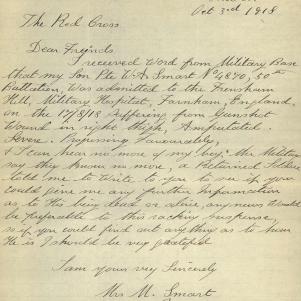 Oct 3rd 1918
The Red Cross.
Dear Freinds
I received Word from Military Base
that my Son Pte W. A. Smart No 4870, 50th
Battalion, Was admitted to the Frensham
Hill, Military Hospital, Farnham, England,
on the 17/8/18 Suffering from Gunshot
Wound in right thigh, Amputated.
Severe. Progressing Favourably,
& I can hear no more of my boy. The Military
say they know no more a Returned Soldier
told me to Write to you to see if you
could give me any further information
as to his being dead or alive, any news Would
be preferable to this racking suspense,
so if you could find out anything as to how
He is I should be very gratified
I am yours very Sincerely
Mrs M. Smart